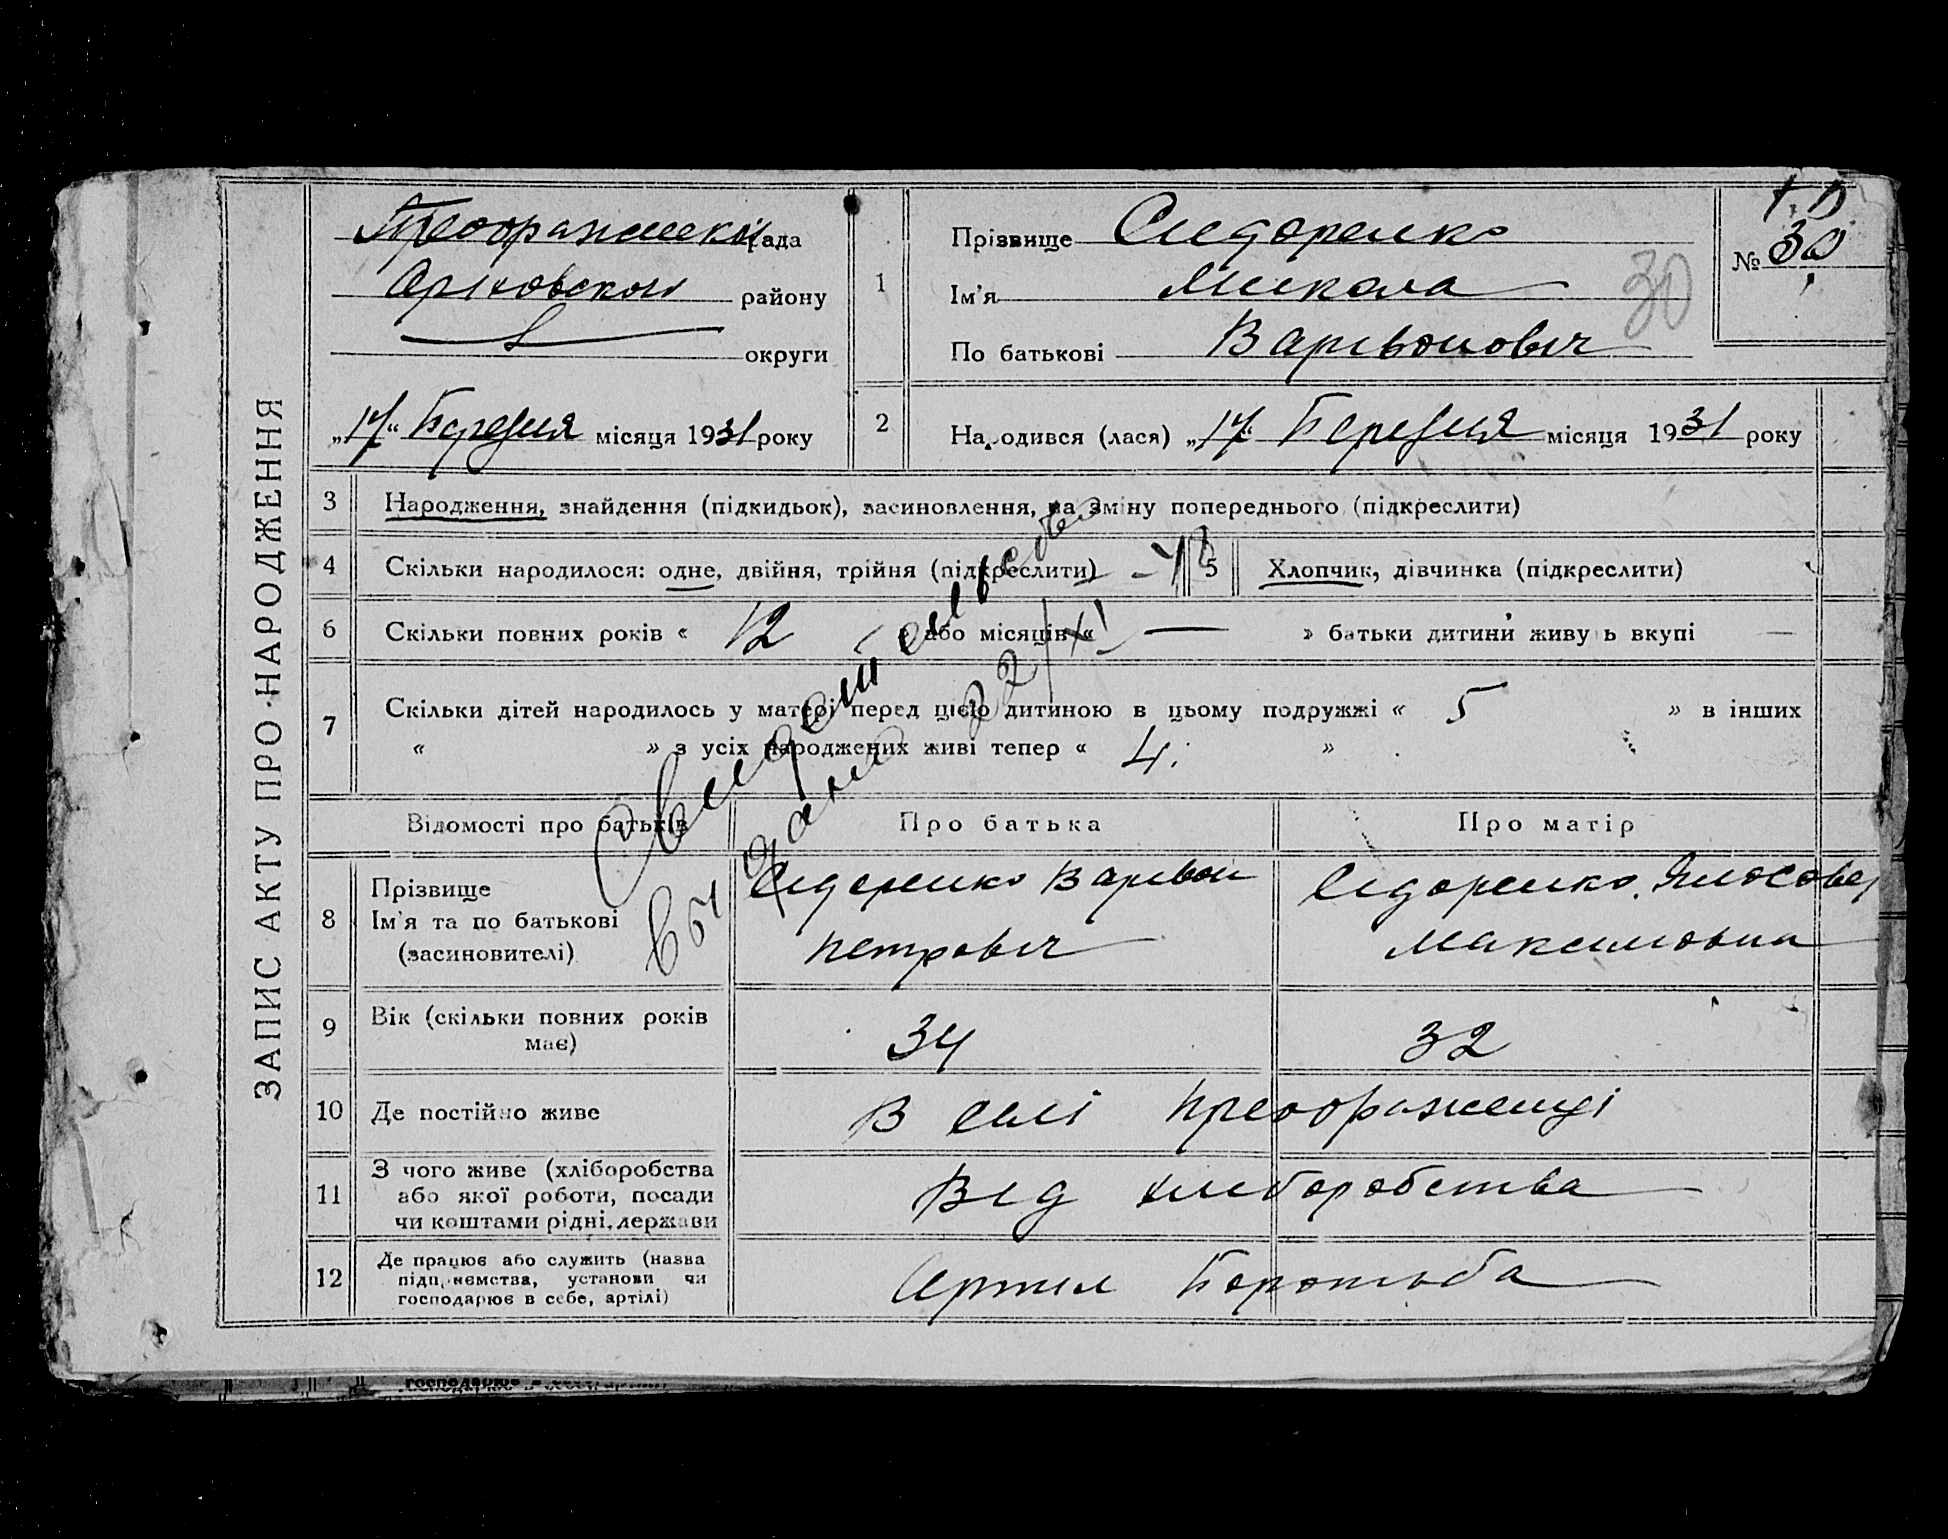 ЗАПИС АКТУ ПРО НАРОДЖЕННЯ
Преображенськ рада
Оріховської району
округи
„17“ Березня місяця 1931 року
1
Прізвище Сидоренко
Ім'я Микола
По батькові Варивонович
30
№ 30
2
Народився (лася) „17“ Березня місяця 1931 року
3 Народження, знайдення (підкидьок), засиновлення, на зміну попереднього (підкреслити)
4 Скільки народилося: одне, двійня, трійня (підкреслити) 5 Хлопчик, дівчинка (підкреслити)
6 Скільки повних років « 12 » або місяців « — » батьки дитини живуть вкупі
7 Скільки дітей народилось у матері перед цією дитиною в цьому подружжі « 5 » в інших
« » з усіх народжених живі тепер « 4 »
Свидетельство
выдано 22/XI
Відомості про батьків Про батька Про матір
8 Прізвище
Ім'я та по батькові
(засиновителі)
Сидоренко Варивон
Петрович
Сидоренко
Максимовна
9 Вік (скільки повних років
має)
34 32
10 Де постійно живе В селі Преображенці
11 З чого живе (хліборобства
або якої роботи, посади
чи коштами рідні, держави
Від хлиборобства
12 Де працює або служить (назва
підприємства, установи чи
господарює в себе, артілі)
Артил Боротьба
господарює в себе, артілі)